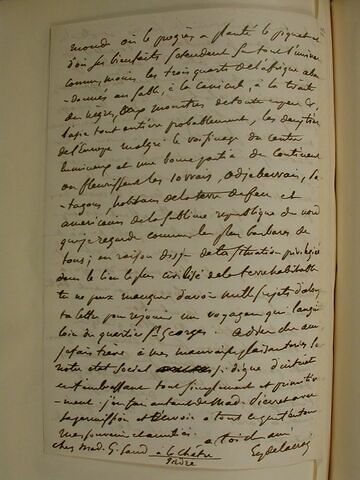 monde où le progrès a planté le piquet
d'où ses bienfaits s'étendent sur tout l'univers
connu, moins les trois quarts de l'afrique aban
-donnés au sable, à la canicule, à la traite
des nègres, aux monstres de toute espèce &
l'asie tout entière probablement, les
de l'Europe malgré le voisinage du centre
lumineux et une bonne partie du continent
où fleurissent les
habitans de la terre de feu et
américains de la sublime république du nord
que je regarde comme les plus barbares de
tous; en raison dis-je de ta situation privilégiée
dans le lieu le plus civilisé de la terre habitable
tu ne peux manquer d'avoir mille sujets d'
ta lettre pour réjouir un voyageur qui languit
loin du quartier St Georges. Adieu cher ami
je fais trève à mes mauvaises plaisanteries sur
notre état social si digne d'intérêt
en t'embrassant tout simplement et primitive
-ment. j'en fais autant de Mad. Pierret avec
sa permission et t'envoie à tout ce qui t'entoure
mes souvenirs
à toi cher ami
Eug Delacroix
chez Mad. G. Sand à la Châtre
Indre